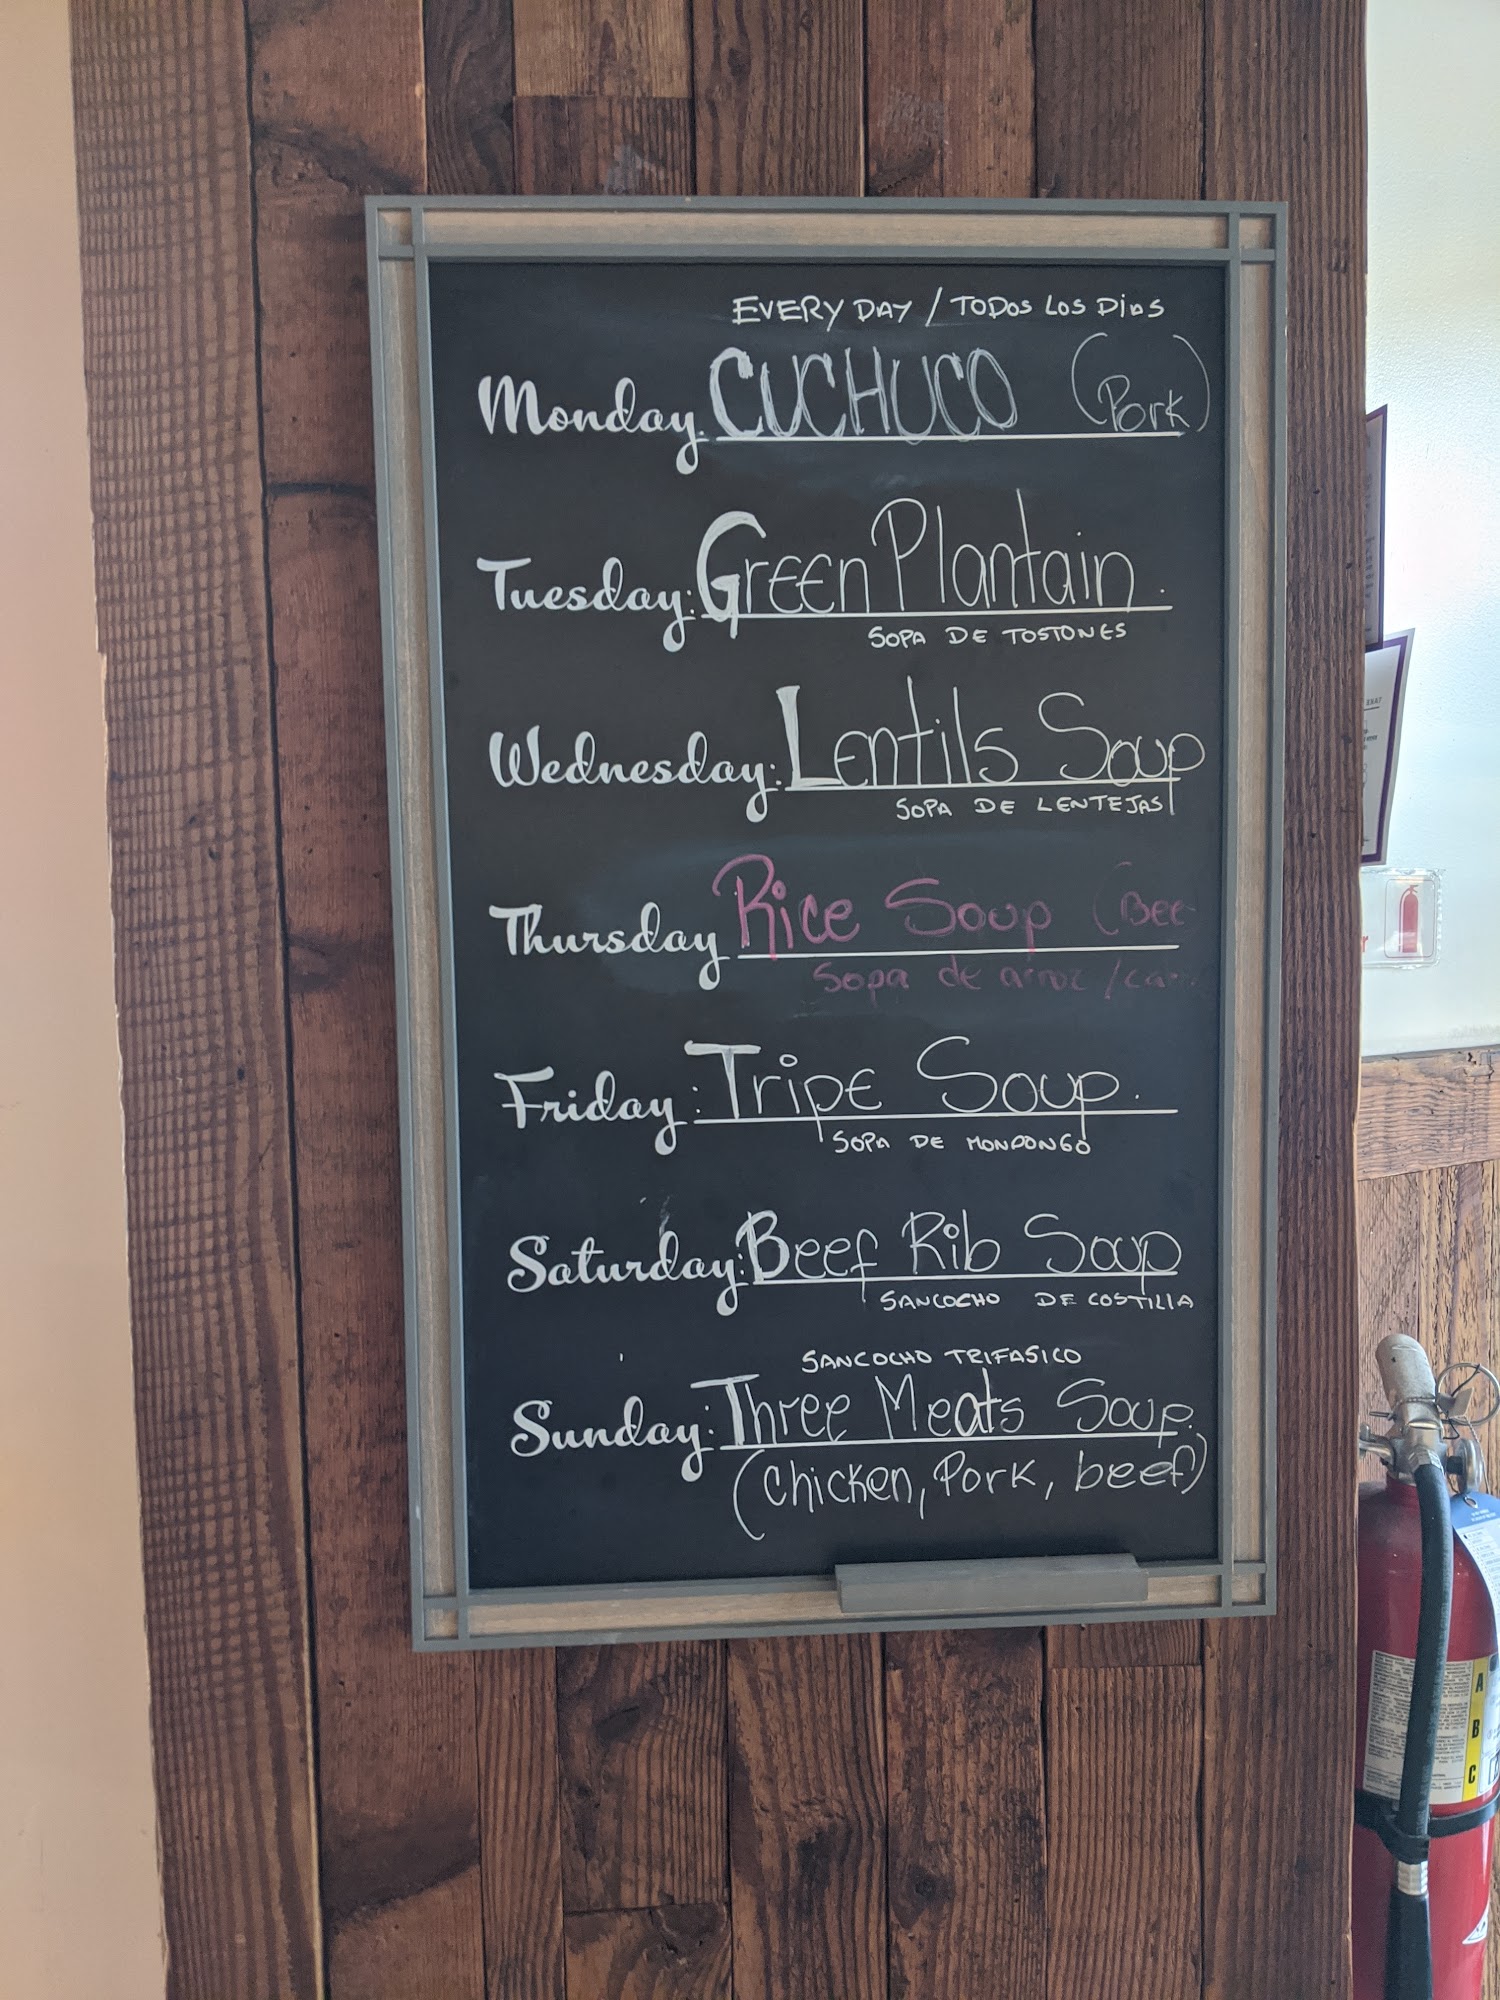 EVERY DAY / TODOS LOS DiAS
Monday: CUCHUCO (Pork)
Tuesday: GrEEn Plantain.
SOPA DE TOSTONES
Wednesday: Lentils Soup
SOPA DE LENTEJAS
Thursday Rice Soup
Sopa de arroz
Friday: Tripe Soup.
SOPA DE MONDONGO
Saturday: Beef Rib Soup
SANCOCHO DE COSTILLA
SANCOCHO TRIFASICO
Sunday: Three Meats Soup.
(Chicken, Pork, beef)
A
B
C